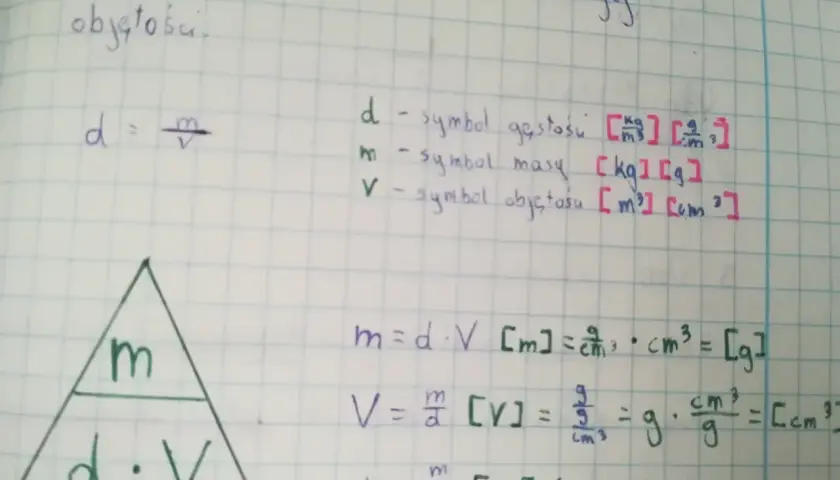 objętości.
d = m/V
d - symbol gęstości [kg/m³] [g/cm³]
m - symbol masy [kg] [g]
V - symbol objętości [m³] [cm³]
m
d · V
m = d · V [m] = g/cm³ · cm³ = [g]
V = m/d [V] = g/(g/cm³) = g · cm³/g = [cm³]
m